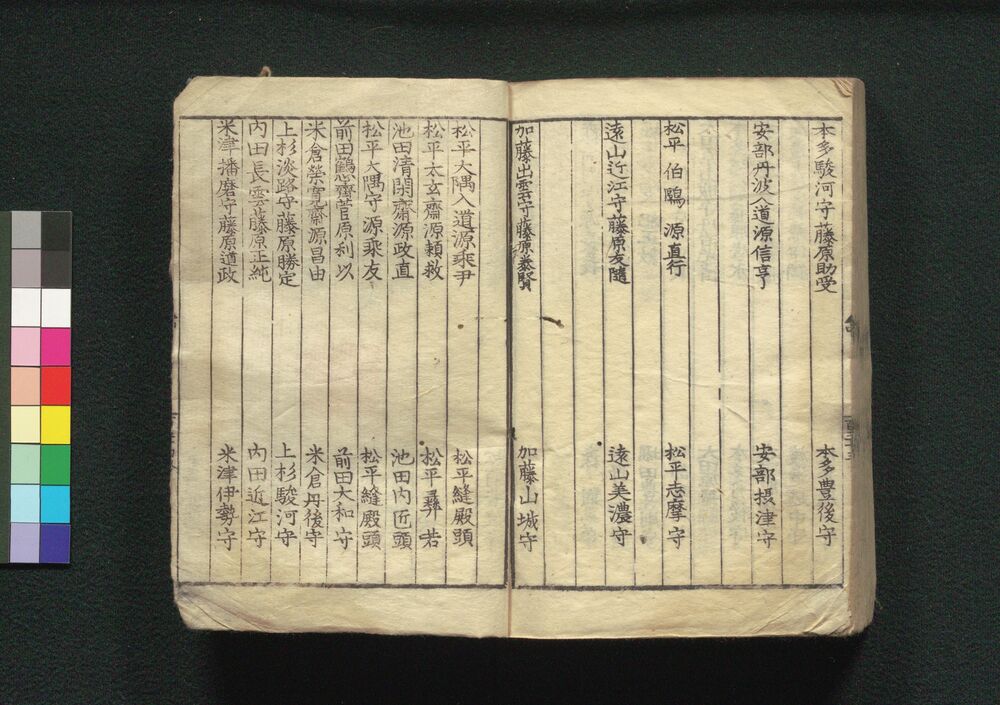 本多駿河守藤原助受　本多豊後守
安部丹波入道源信亨　安部摂津守
松平伯鷗源直行　松平志摩守
遠山近江守藤原友随　遠山美濃守
加藤出雲守藤原　賢　加藤山城守
松平大隅入道源乗尹　松平縫殿頭
松平太玄齋源頼救　松平彛若
池田清閑齋源政直　池田内匠頭
松平大隅守源乗友　松平縫殿頭
前田鶴齋菅原利以　前田大和守
米倉榮寛齋源昌由　米倉丹後守
上杉淡路守藤原勝定　上杉駿河守
内田長雲藤原正純　内田近江守
米津播磨守藤原道政　米津伊勢守